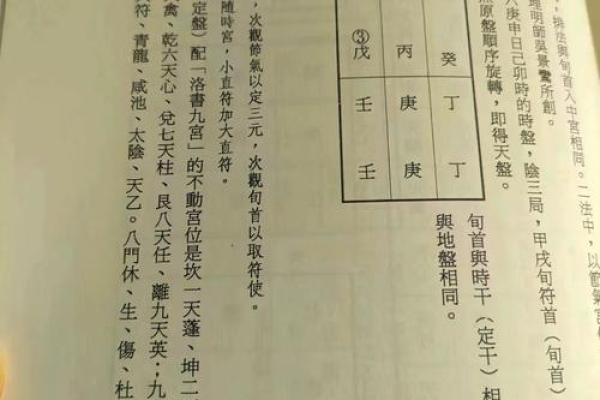 ，排法與旬首入中宮相同。二法中，以節氣
理明師吳景鸞所創。
六庚申日己卯時的時盤，陰三局，甲戌旬符首（旬首）
原盤順序旋轉，即得天盤。
旬首與時干（定干）相
與地盤相同。
癸 丁 丁
丙 庚 庚
③戊 壬 壬
，次觀節氣以定三元，次觀旬首以取符使。
隨時宮，小直符加大直符。
定盤）配「洛書九宮」的不動宮位是坎一天蓬、坤二
禽、乾六天心、兌七天柱、艮八天任、離九天英；九
符、青龍、咸池、太陰、天乙。八門休、生、傷、杜